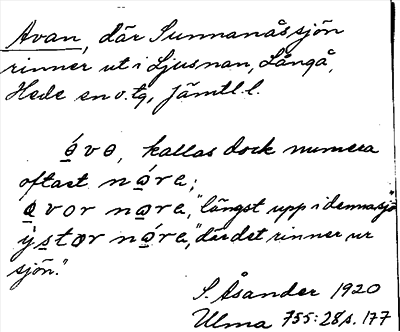 Avan, där Sunnanåssjön
rinner ut i Ljusnan, Långå,
Hede sn o. tg, Jämtl. l.
ávo, kallas dock numera
oftast nára;
øvor nara, "längst upp i denna sjö
ýstør nára, "där det rinner ur
sjön."
S. Åsander 1920
Ulma 755:28 s. 177